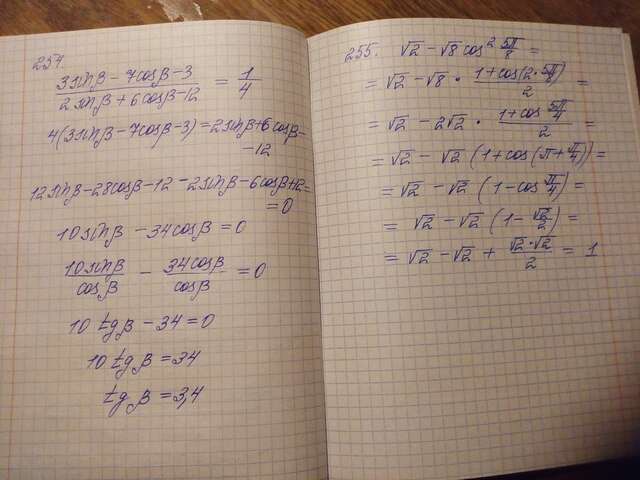 254.
(3sinβ - 7cosβ - 3)/(2sinβ + 6cosβ - 12) = 1/4
4(3sinβ - 7cosβ - 3) = 2sinβ + 6cosβ -
- 12
12sinβ - 28cosβ - 12 - 2sinβ - 6cosβ + 12 =
= 0
10sinβ - 34cosβ = 0
10sinβ/cosβ - 34cosβ/cosβ = 0
10 tgβ - 34 = 0
10 tgβ = 34
tgβ = 3,4
255. √2 - √8 cos² 5π/8 =
= √2 - √8 · (1 + cos(2 · 5π/8))/2 =
= √2 - 2√2 · (1 + cos 5π/4)/2 =
= √2 - √2 (1 + cos(π + π/4)) =
= √2 - √2 (1 - cos π/4) =
= √2 - √2 (1 - √2/2) =
= √2 - √2 + (√2·√2)/2 = 1